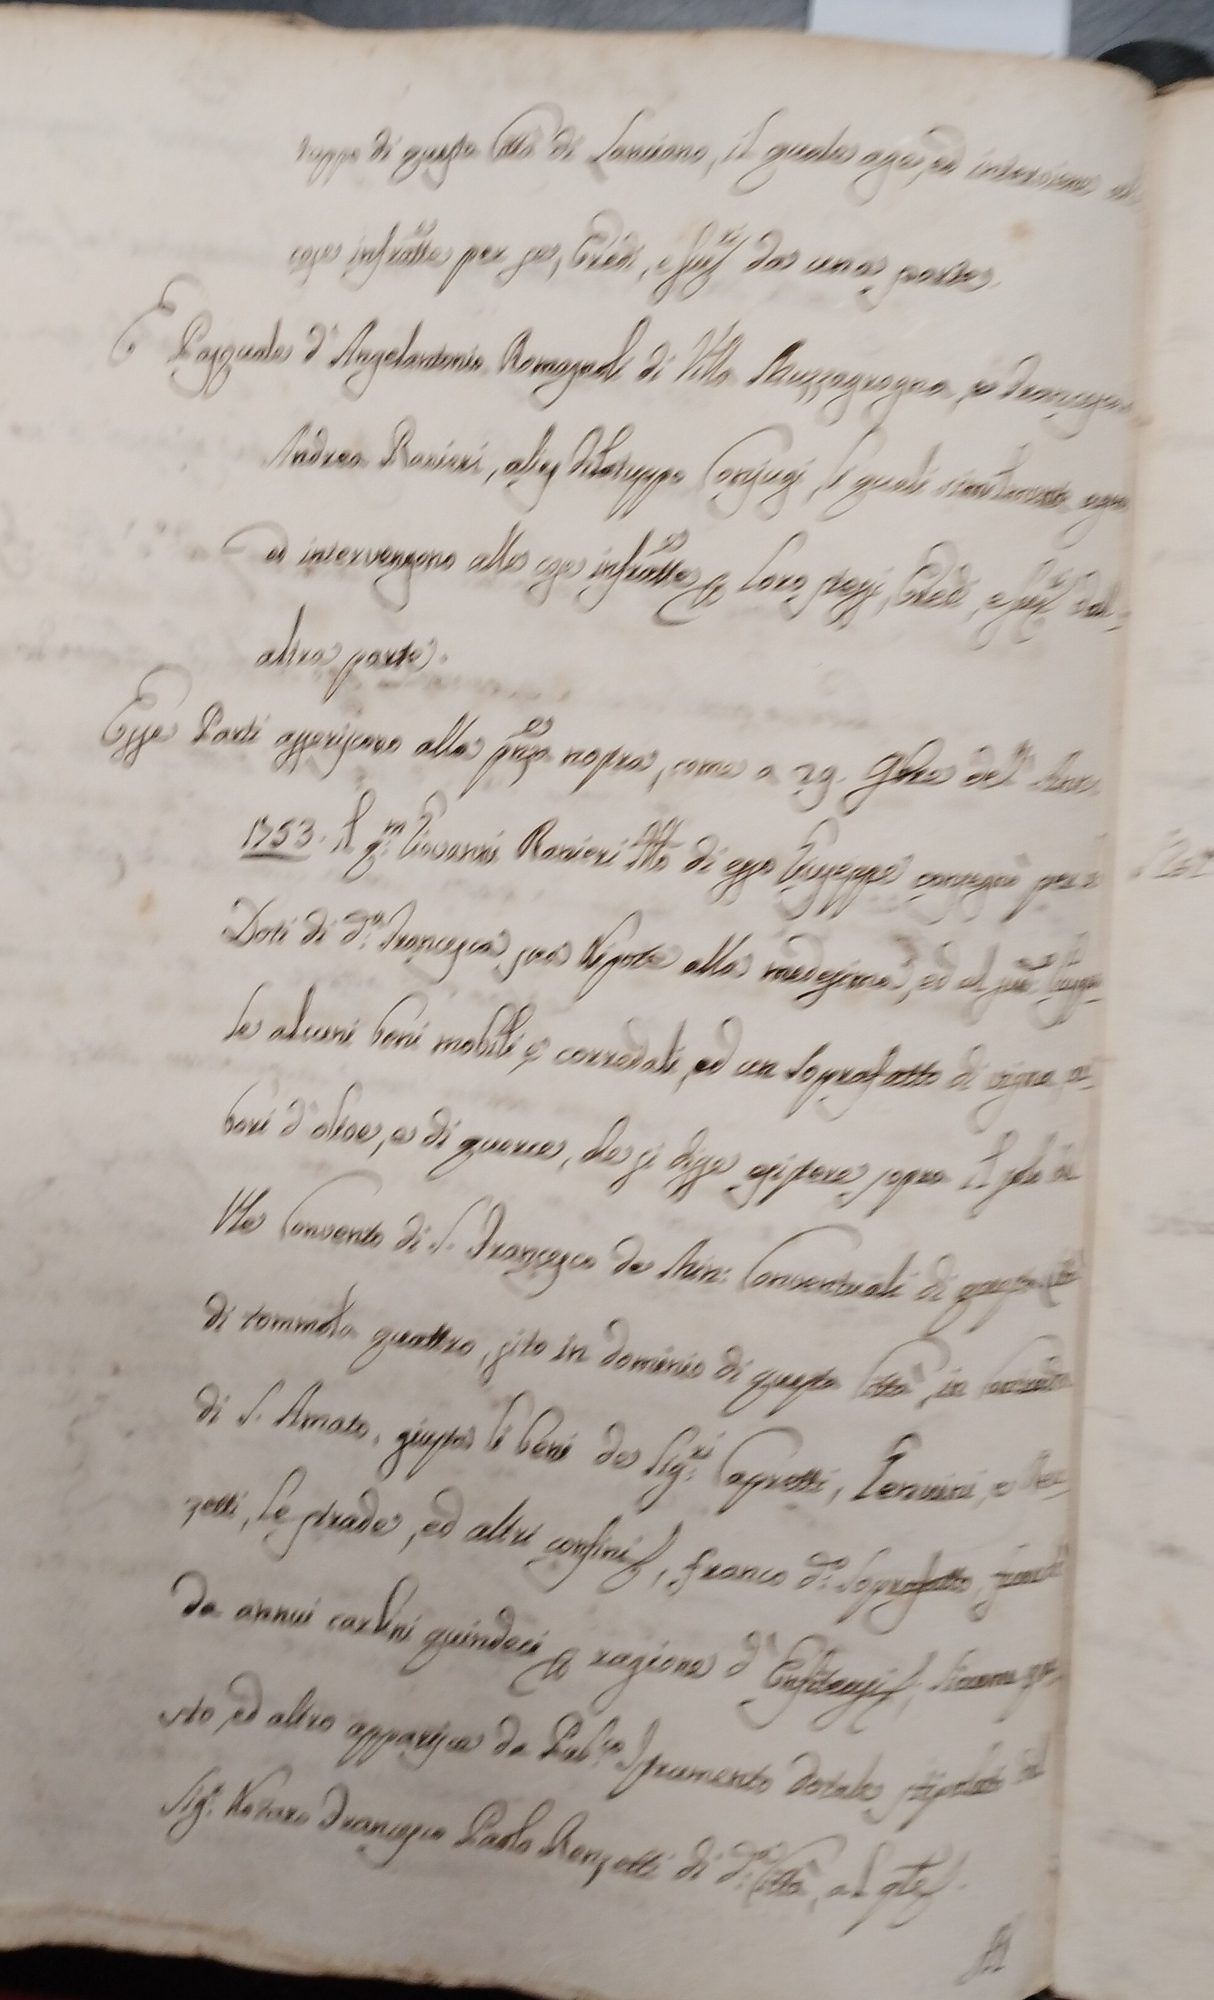 tuppo di questa Città di Lanciano, il quale age, ed interviene al
cose infratte per se, Eredi, e suçi da una parte.
E Pasquale d'Angelantonio Romagnoli di Villa Mozzagrogna, e Francesca
Andrea Ranieri, alias Bilotuppo Conjugi, li quali similmente agono
ed intervengono alle cose infratte per loro stessi, Eredi, e suçi dal-
altra parte.
Esse Parti asseriscono alla pnza nostra, come a 29. 9bre dell'Anno
1753. Il qm: Giovanni Ranieri Ttto di esso Giuseppe consegnò per le
Doti di da: Francesca sua Nipote alla medesima, ed al
le alcuni beni mobili, e corredali, ed un soprafatto di vigna, ar-
bori d'olive, e di querce, che si disse esistere sopra il solo del
Vle Convento di S. Francesco de Min: Conventuali di questa Città
di tommola quattro, sito in dominio di questa Città, in Contrada
di S. Amato, giusta li beni de Sigri: Capretti, Genuini, e Ren-
zetti, le strade, ed altri confini, franco do: Soprafatto,
da annui carlini quindeci per ragione d'Enfiteusi, siccome que-
sto, ed altro apparisce da Pubco Istrumento dotale stipulato dal
Sigr. Notaro Francesco Paolo Renzetti di da: Città, al qle